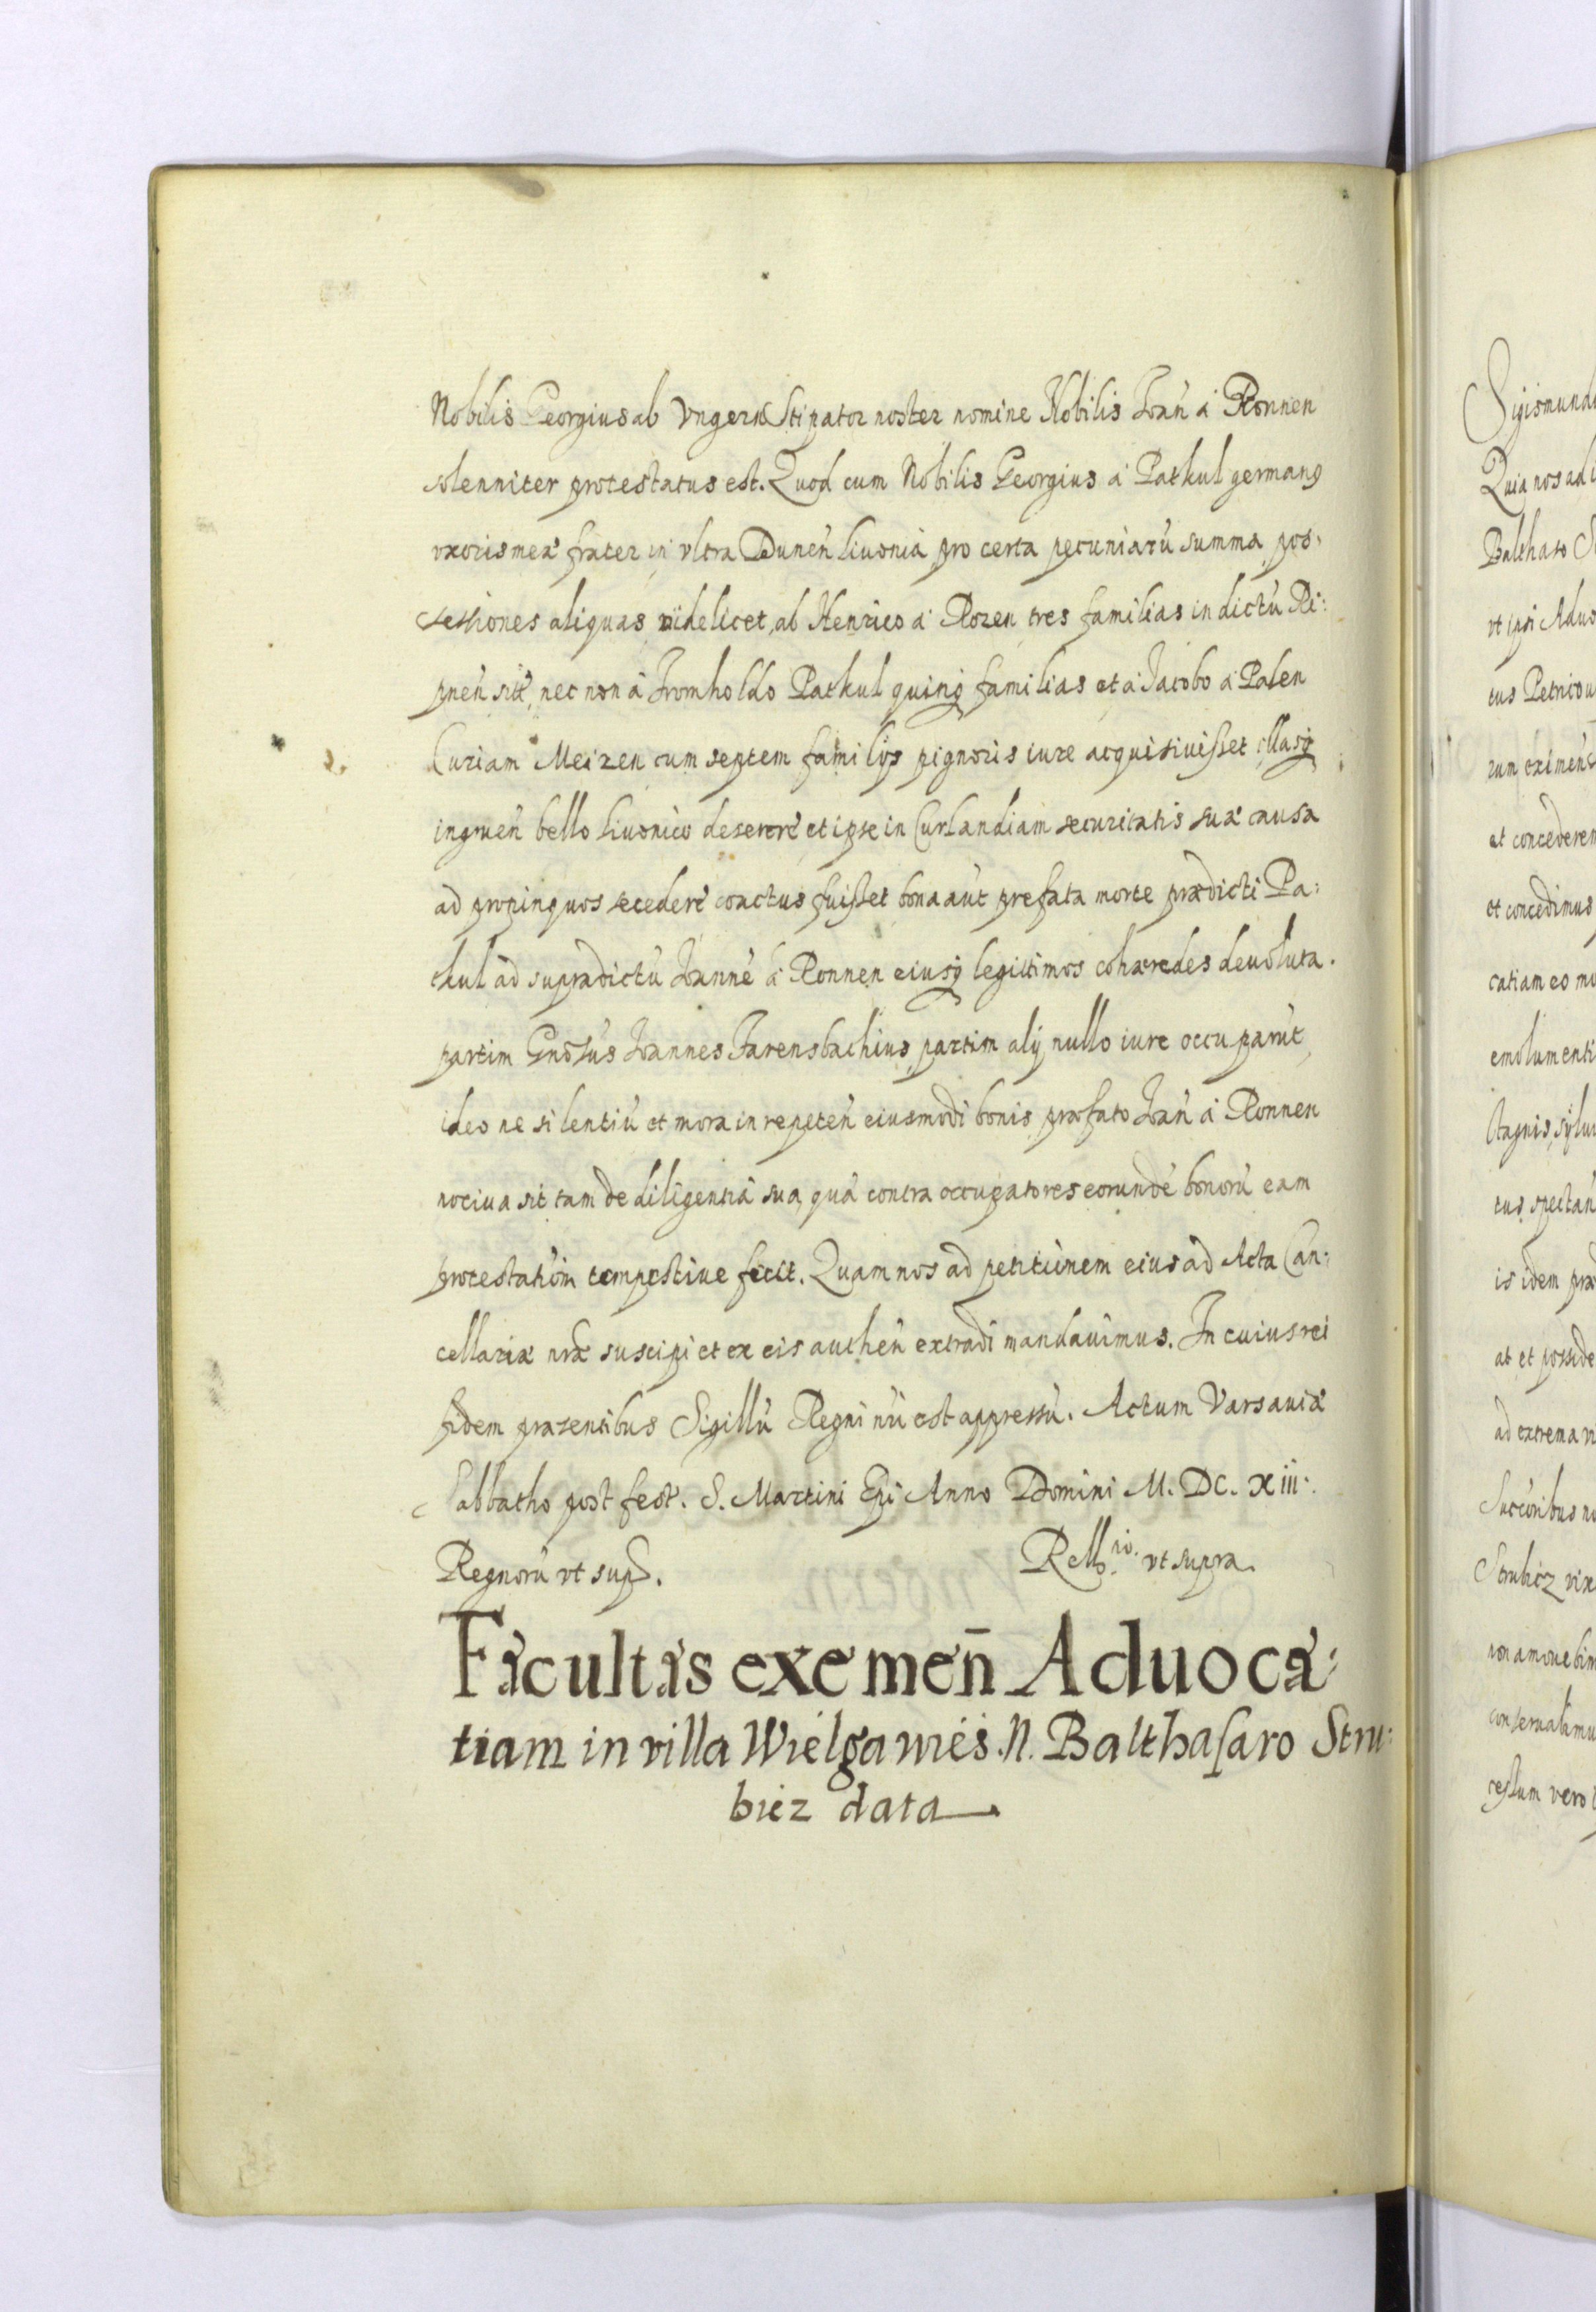 Nobilis Georgius ab Vngern Stipator noster nomine Nobilis Ioañ à Ronnen
solenniter protestatus est. Quod cum Nobilis Georgius à Patkul germanꝯ
vxoris meæ frater in vltra Duneñ liuonia pro certa pecuniarũ summa pos:
sessiones aliquas videlicet, ab Henrico à Rozen tres familias in dictũ Ri:
pneñ nec non à Fromholdo Patkul quinqꝫ familias et à Iacobo à Palen
Curiam Meizen cum septem familijs pignoris iure acquisiuisset illasqꝫ
ingrueñ bello liuonico deserere et ipse in Curlandiam securitatis suæ causa
ad propinquos secedere coactus fuisset bona aũt prefata morte prædicti Pa:
tkul ad supradictũ Ioannẽ à Ronnen eiusqꝫ legittimos cohæredes deuoluta.
partim Gnosus Ioannes Farensbachius, partim alij nullo iure occuparũt,
ideo ne silentiũ et mora in repeteñ eiusmodi bonis præfato Ioañ à Ronnen
nociua sit tam de diligentia sua, quã contra occupatores eorundẽ bonorũ eam
protestatiom tempestiue fecit. Quam nos ad petitionem eius ad Acta Can:
cellariæ nræ suscipi et ex eis autheñ extradi mandauimus. In cuius rei
fidem præsentibus Sigillũ Regni nri est appressũ. Actum Varsauiæ
Sabbatho post fest. S. Martini Epi Anno Domini M. DC. XIII.
Regnorũ vt sup. Rello io. vt supra.
Facultas exemeñ Aduoca:
tiam in villa Wielgawieś N. Balthasaro Stru:
bicz data
Sigismund
Quia nos ad
Balthaso S
vt ipsi Aduo
tus Petricou
rum eximeñ
et concederem
et concedimus
catiam eo mo
emolumenti
stagnis, sylui
tus spectañ
is idem præ
at et posside
ad extrema vi
Succoribus no
Strubicz vix
non amouebim
conseruabimu
cessum vero